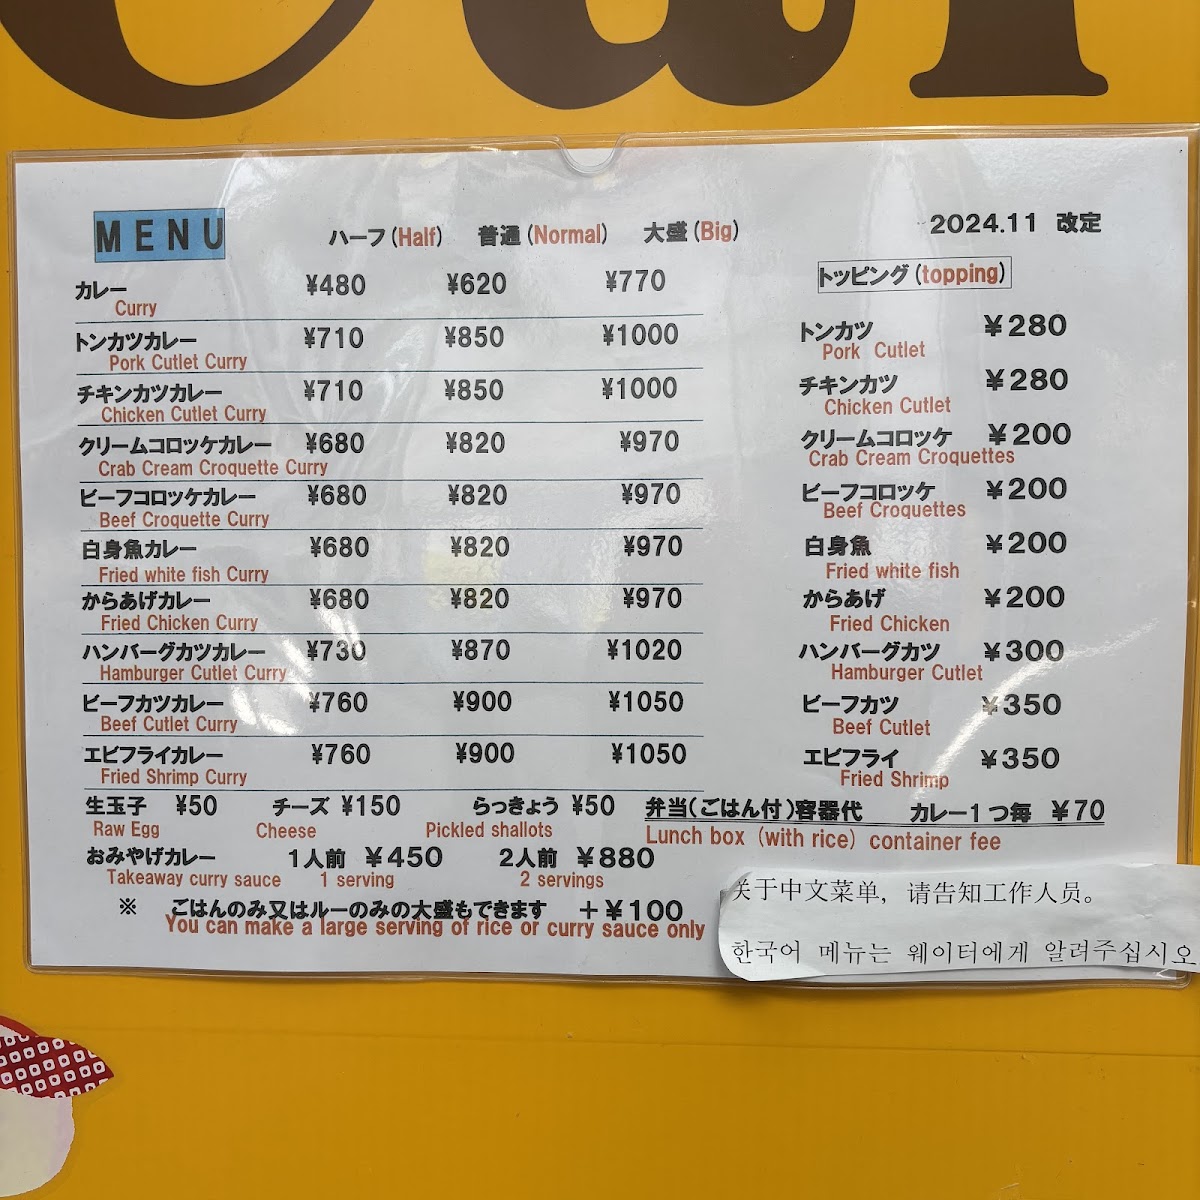 MENU ハーフ(Half) 普通(Normal) 大盛(Big)
カレー ¥480 ¥620 ¥770
Curry
トンカツカレー ¥710 ¥850 ¥1000
Pork Cutlet Curry
チキンカツカレー ¥710 ¥850 ¥1000
Chicken Cutlet Curry
クリームコロッケカレー ¥680 ¥820 ¥970
Crab Cream Croquette Curry
ビーフコロッケカレー ¥680 ¥820 ¥970
Beef Croquette Curry
白身魚カレー ¥680 ¥820 ¥970
Fried white fish Curry
からあげカレー ¥680 ¥820 ¥970
Fried Chicken Curry
ハンバーグカツカレー ¥730 ¥870 ¥1020
Hamburger Cutlet Curry
ビーフカツカレー ¥760 ¥900 ¥1050
Beef Cutlet Curry
エビフライカレー ¥760 ¥900 ¥1050
Fried Shrimp Curry
2024.11 改定
トッピング(topping)
トンカツ ¥280
Pork Cutlet
チキンカツ ¥280
Chicken Cutlet
クリームコロッケ ¥200
Crab Cream Croquettes
ビーフコロッケ ¥200
Beef Croquettes
白身魚 ¥200
Fried white fish
からあげ ¥200
Fried Chicken
ハンバーグカツ ¥300
Hamburger Cutlet
ビーフカツ ¥350
Beef Cutlet
エビフライ ¥350
Fried Shrimp
生玉子 ¥50 チーズ ¥150 らっきょう ¥50
Raw Egg Cheese Pickled shallots
弁当(ごはん付)容器代 カレー1つ毎 ¥70
Lunch box (with rice) container fee
おみやげカレー 1人前 ¥450 2人前 ¥880
Takeaway curry sauce 1 serving 2 servings
※ ごはんのみ又はルーのみの大盛もできます +¥100
You can make a large serving of rice or curry sauce only
关于中文菜单，请告知工作人员。
한국어 메뉴는 웨이터에게 알려주십시오